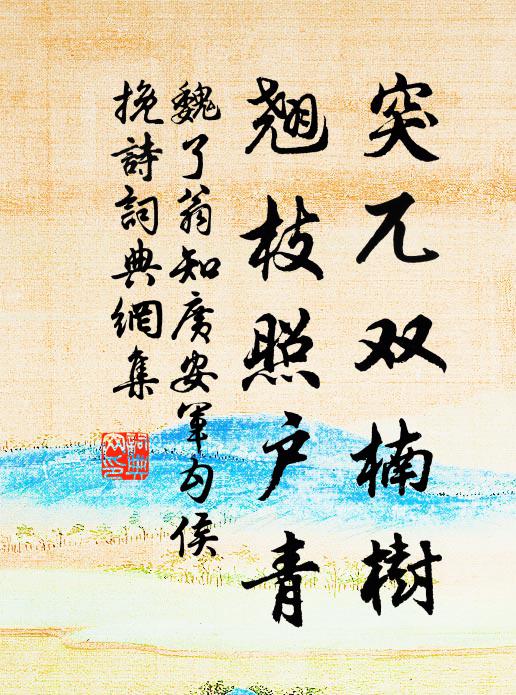 突兀双楠樹
翹枝照户青
魏了翁知廣安軍勾侯
挽詩詞典網集